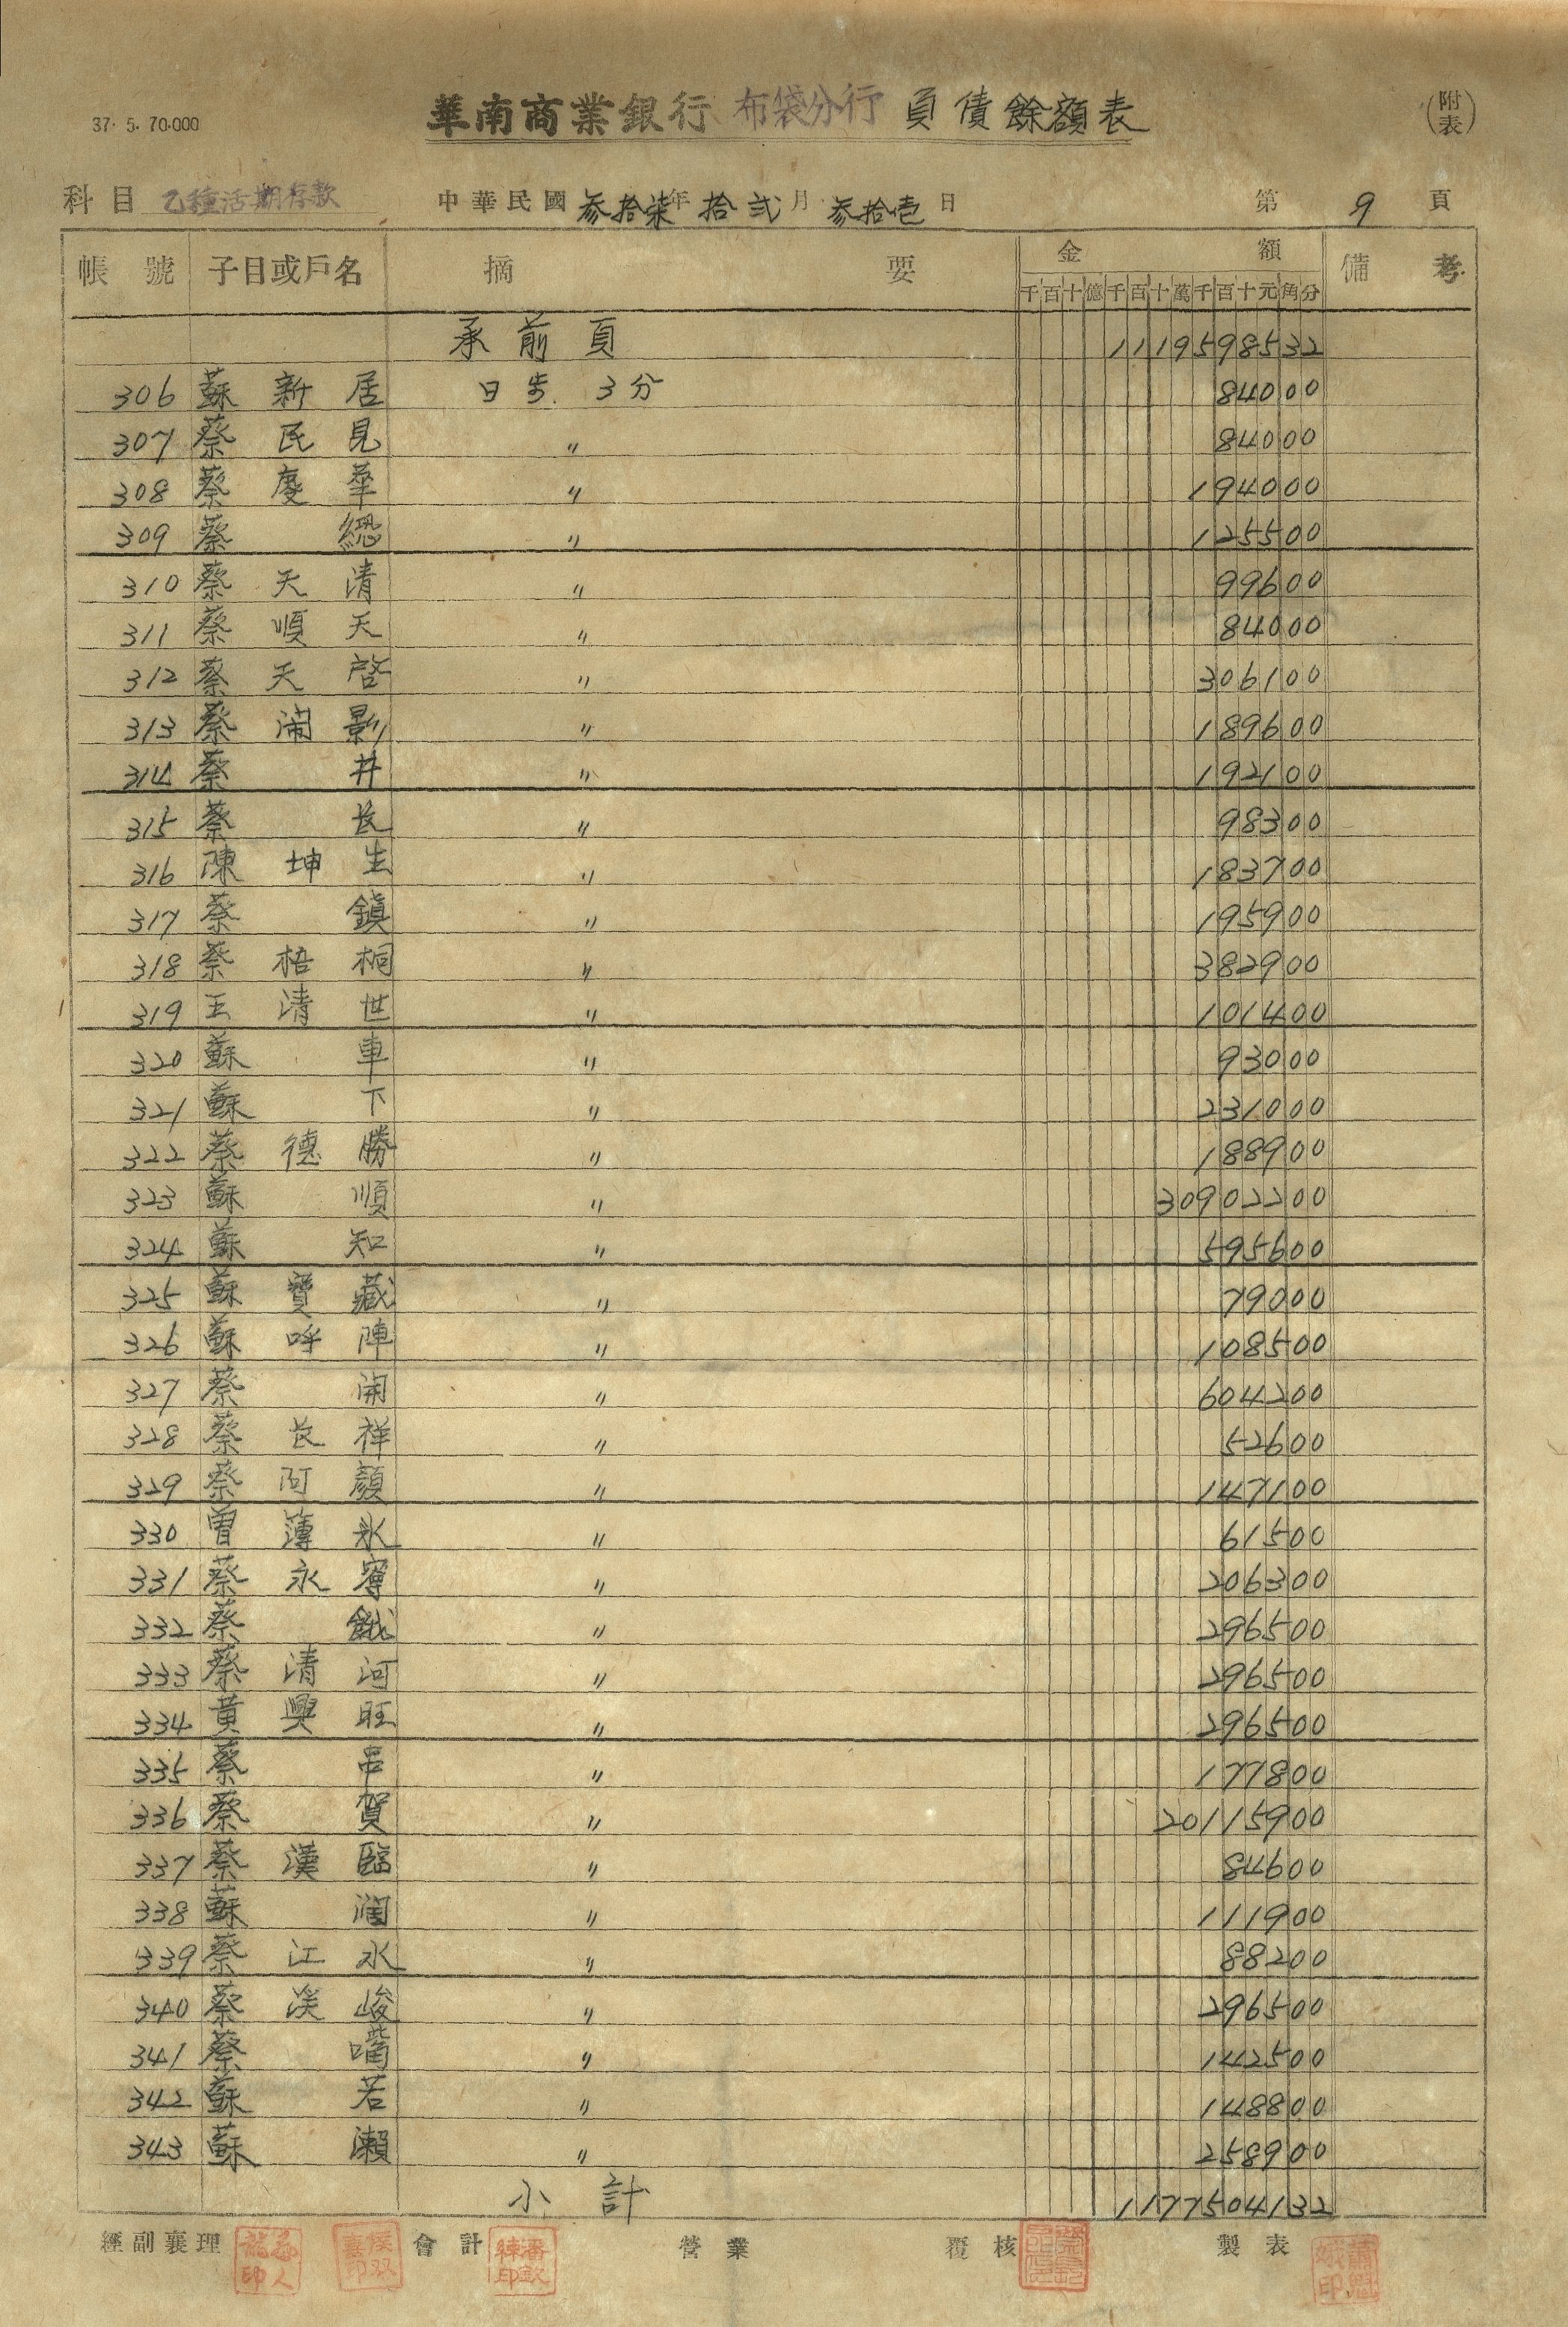 37. 5. 70.000
華南商業銀行 布袋分行 負債餘額表
(附表)
科目 乙種活期存款 中華民國 叁拾柒年 拾弍月 叁拾壱日 第 9 頁
帳號 子目或戶名 摘要 金額 備考
千百十億千百十萬千百十元角分
承前頁 1119598532
306 蘇新居 日步 3分 84000
307 蔡民見 〃 84000
308 蔡慶華 〃 194000
309 蔡 〃 125500
310 蔡天清 〃 99600
311 蔡順天 〃 84000
312 蔡天啓 〃 306100
313 蔡鬧影 〃 189600
314 蔡井 〃 192100
315 蔡長 〃 98300
316 陳坤生 〃 183700
317 蔡鎭 〃 195900
318 蔡梧桐 〃 382900
319 王清世 〃 101400
320 蘇車 〃 93000
321 蘇下 〃 231000
322 蔡德勝 〃 188900
323 蘇順 〃 30902200
324 蘇知 〃 595600
325 蘇寶藏 〃 79000
326 蘇呼陣 〃 108500
327 蔡開 〃 604200
328 蔡長祥 〃 52600
329 蔡阿顏 〃 147100
330 曾薄氷 〃 61500
331 蔡永寧 〃 206300
332 蔡餓 〃 296500
333 蔡清河 〃 296500
334 黃興旺 〃 296500
335 蔡串 〃 177800
336 蔡賀 〃 20115900
337 蔡漢臨 〃 84600
338 蘇濶 〃 111900
339 蔡江水 〃 88200
340 蔡溪峻 〃 296500
341 蔡嘴 〃 142500
342 蘇若 〃 148800
343 蘇瀨 〃 258900
小計 1177504132
經副襄理 會計 營業 覆核 製表